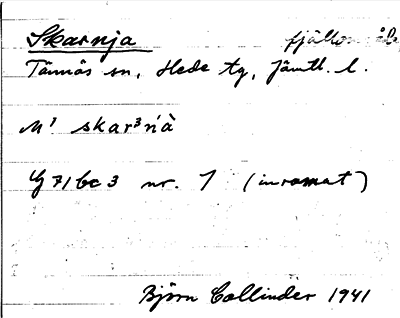 Skarnja fjällområde
Tännäs sn, Hede tg, Jämtl. l.
M' skar³ńà
G 71 bc 3 nr. 1 (inramat)
Björn Collinder 1941